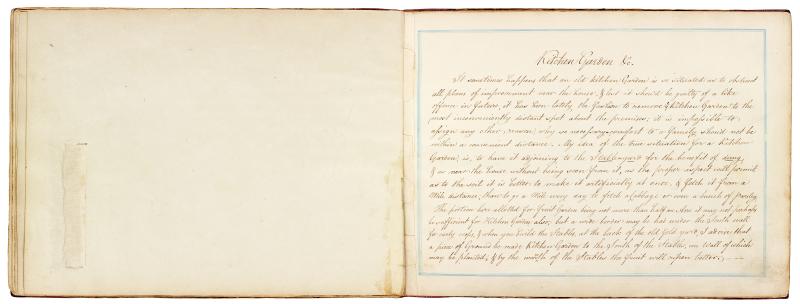 Kitchen Garden &c.
It sometimes happens that an old Kitchen Garden is so situated as to obstruct
all plans of improvement near the house, & lest it should be guilty of a like
offence in future, it has been lately the fashion to remove a Kitchen Garden to the
most inconveniently distant spot about the premises; it is impossible to
assign any other reason, why so necessary a comfort to a family, should not be
within a convenient distance. My idea of the true situation for a Kitchen
Garden, is, to have it adjoining to the Stableyard for the benefit of dung,
& as near the house without being seen from it, as the proper aspect will permit
as to the soil it is better to make it artificially at once, & fetch it from a
Mile distance; than to go a Mile every day to fetch a Cabbage or even a bunch of parsley
The portion here allotted for Fruit Garden being not more than half an Acre it may not perhaps
be sufficient for Kitchen Garden also; but a wide border may be had under the South wall
for early crops, & when you build the Stable, at the back of the old fold yard, I advise that
a piece of Ground be made Kitchen Garden to the South of the Stables, on Wall of which
may be planted, & by the warmth of the Stables the fruit will ripen better.